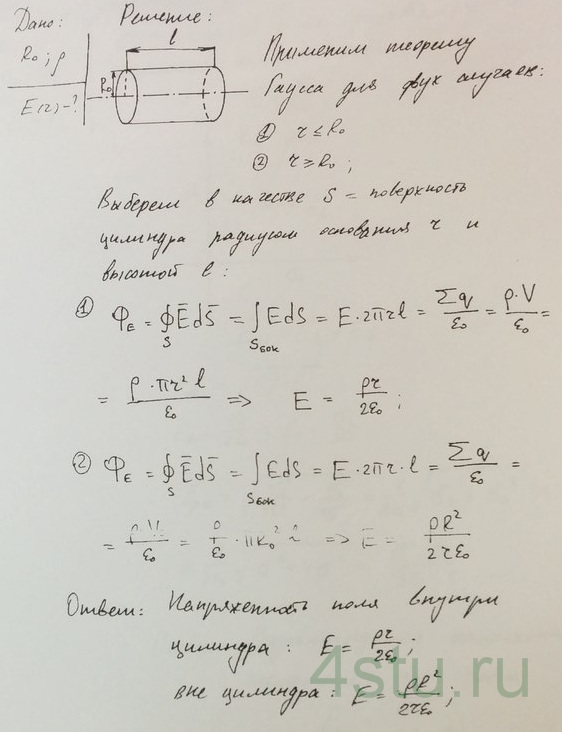 Дано:
R₀; ρ
E(r)-?
Решение:
l
R₀
Применим теорему
Гаусса для двух случаев:
① r ≤ R₀
② r ≥ R₀;
Выберем в качестве S = поверхность
цилиндра радиусом основания r и
высотой l:
① Φ_E = ∮_S E̅dS̅ = ∫_Sбок EdS = E·2πrl = Σq/ε₀ = ρ·V/ε₀ =
= ρ·πr²l/ε₀ => E = ρr/2ε₀;
② Φ_E = ∮_S E̅dS̅ = ∫_Sбок EdS = E·2πr·l = Σq/ε₀ =
= ρ·V/ε₀ = ρ/ε₀·πR₀²l => E = ρR²/2rε₀
Ответ: Напряженность поля внутри
цилиндра: E = ρr/2ε₀;
вне цилиндра: E = ρR²/2rε₀;
4stu.ru